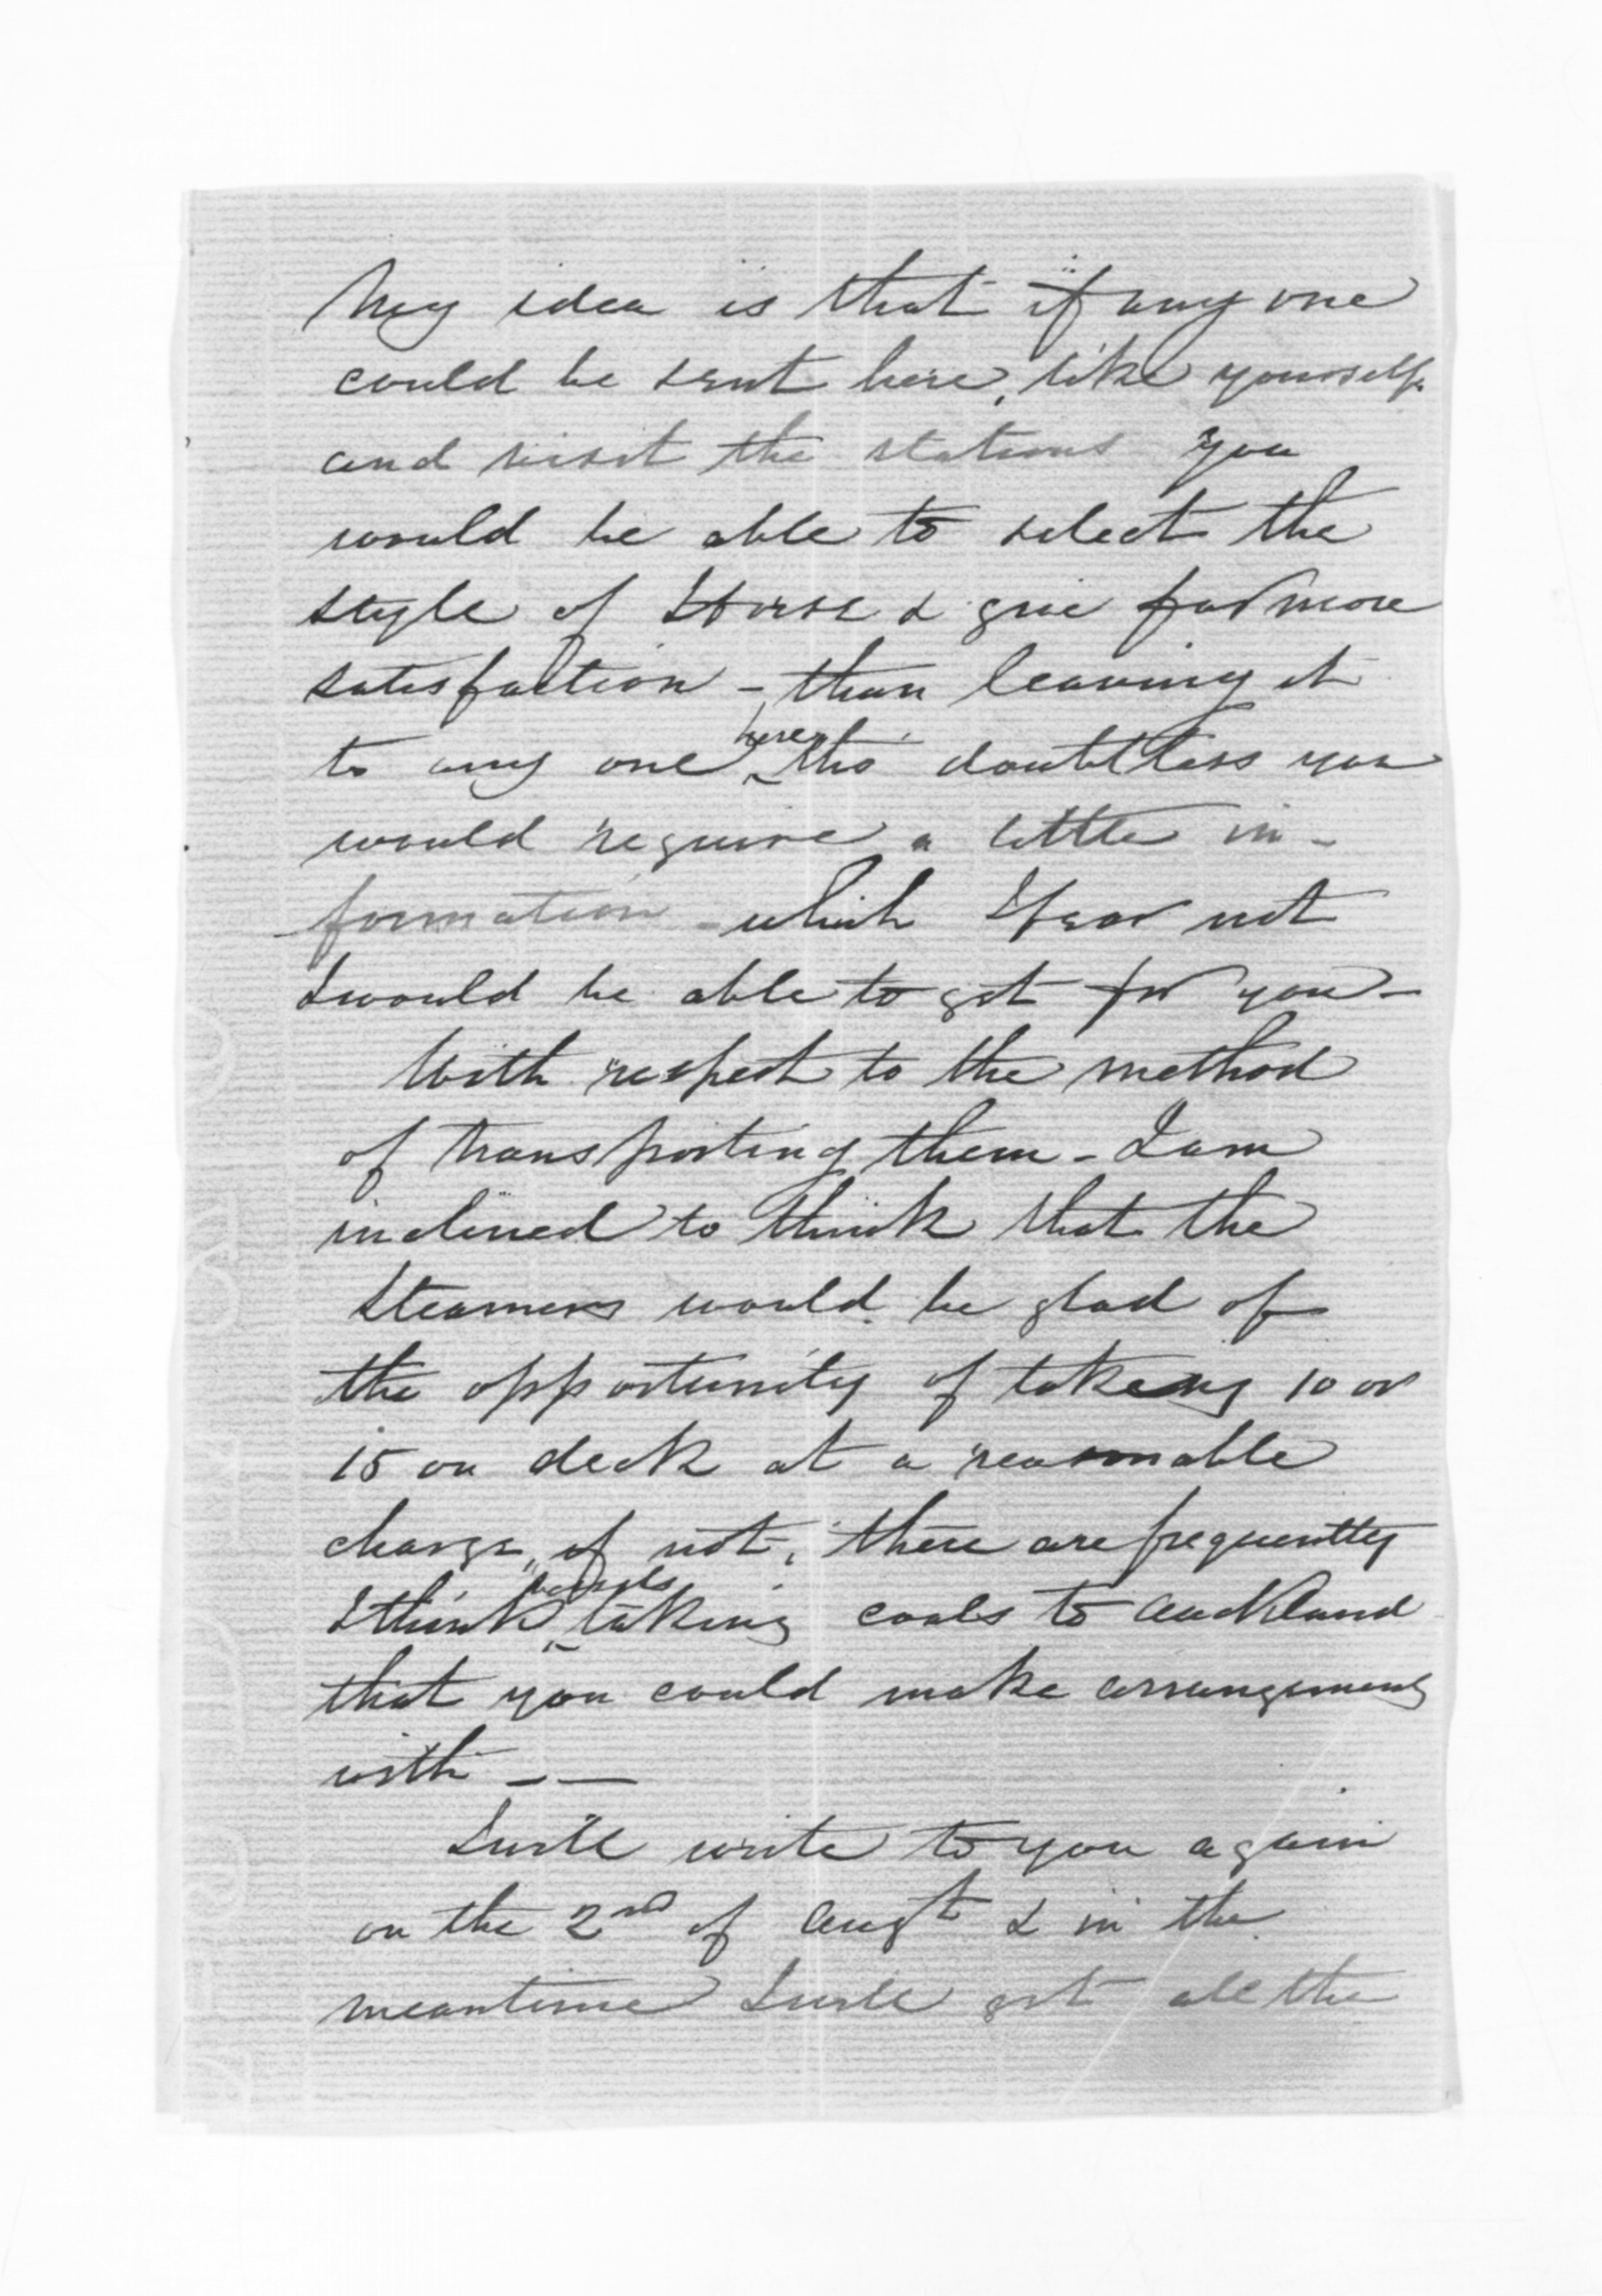 My idea is that if any one
could be sent here, like yourself
and visit the stations you
would be able to select the
style of Horse & give far more
satisfaction - than leaving it
to any one here tho' doubtless you
would require a little in-
formation - which I fear not
I would be able to get for you -
With respect to the method
of transporting them - I am
inclined to think that the
Steamers would be glad of
the opportunity of taking 10 or
15 on deck at a reasonable
charge, if not, there are frequently
I think vessels taking coals to Auckland
that you could make arrangements
with - -
I will write to you again
on the 2nd of Augt & in the
meantime I will get all the